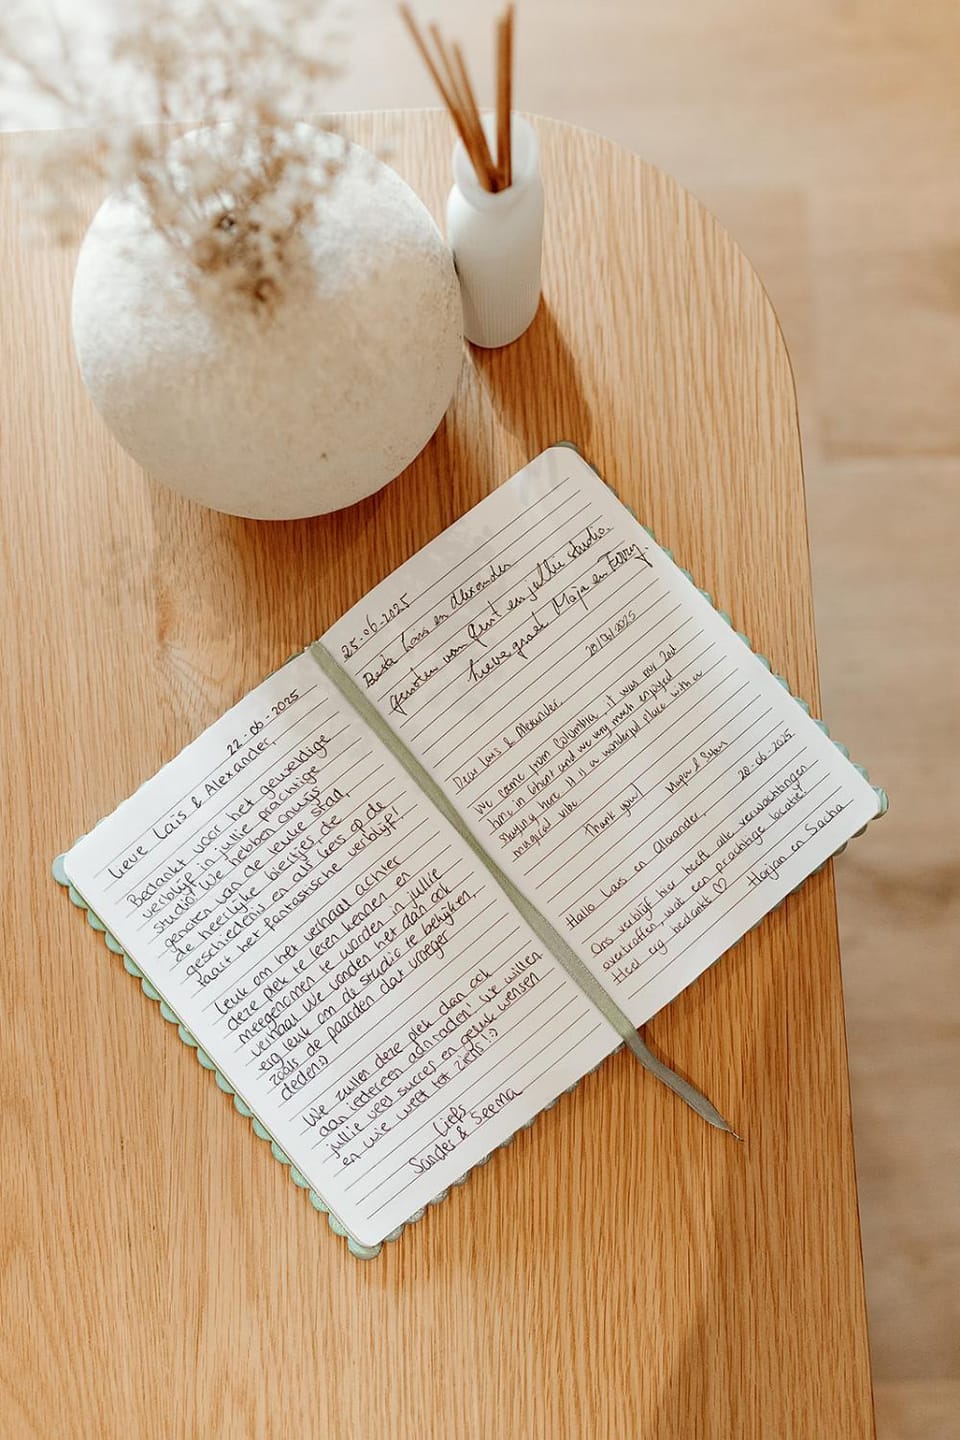 22-06-2025
Lieve Laïs & Alexander,
Bedankt voor het geweldige
verblijf in jullie prachtige
studio! We hebben onwijs
genoten van de leuke stad,
de heerlijke biertjes, de
geschiedenis en als kers op de
taart het fantastische verblijf!
Leuk om het verhaal achter
deze plek te leren kennen en
meegenomen te worden in jullie
verhaal. We vonden het dan ook
erg leuk om de studio te bekijken,
zoals de paarden dat vroeger
deden :)
We zullen deze plek dan ook
aan iedereen aanraden! We willen
jullie veel succes en geluk wensen
en wie weet tot ziens! :)
Liefs
Sander & Seema
25-06-2025
Beste Laïs en Alexander
genoten van Gent en jullie studio.
Lieve groet Maja en Ferry.
28/06/2025
Dear Laïs & Alexander,
We came from Colombia, it was our 2nd
time in Ghent and we very much enjoyed
staying here. It is a wonderful place with a
magical vibe.
Thank you!
28-06-2025
Hallo Laïs en Alexander,
Ons verblijf hier heeft alle verwachtingen
overtroffen, wat een prachtige locatie!
Heel erg bedankt ♡
Marjan en Sacha